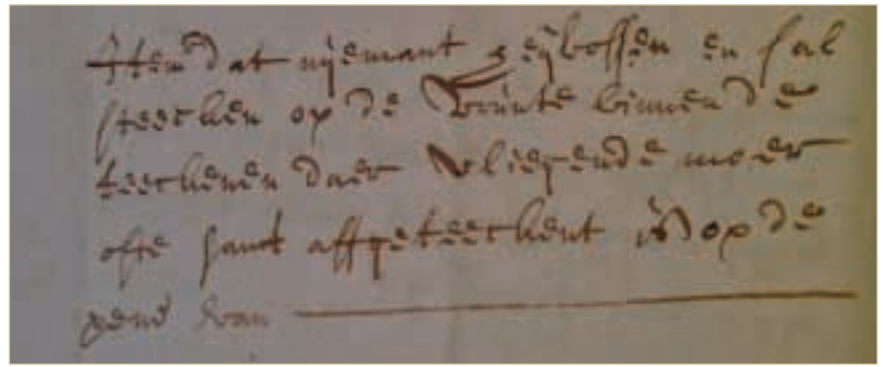 Item dat nyemant heybossen en sal
steecken op de Vrunte binnen de
teeckenen daer vliegende moer
ofte sant affgeteeckent is op de
pene van